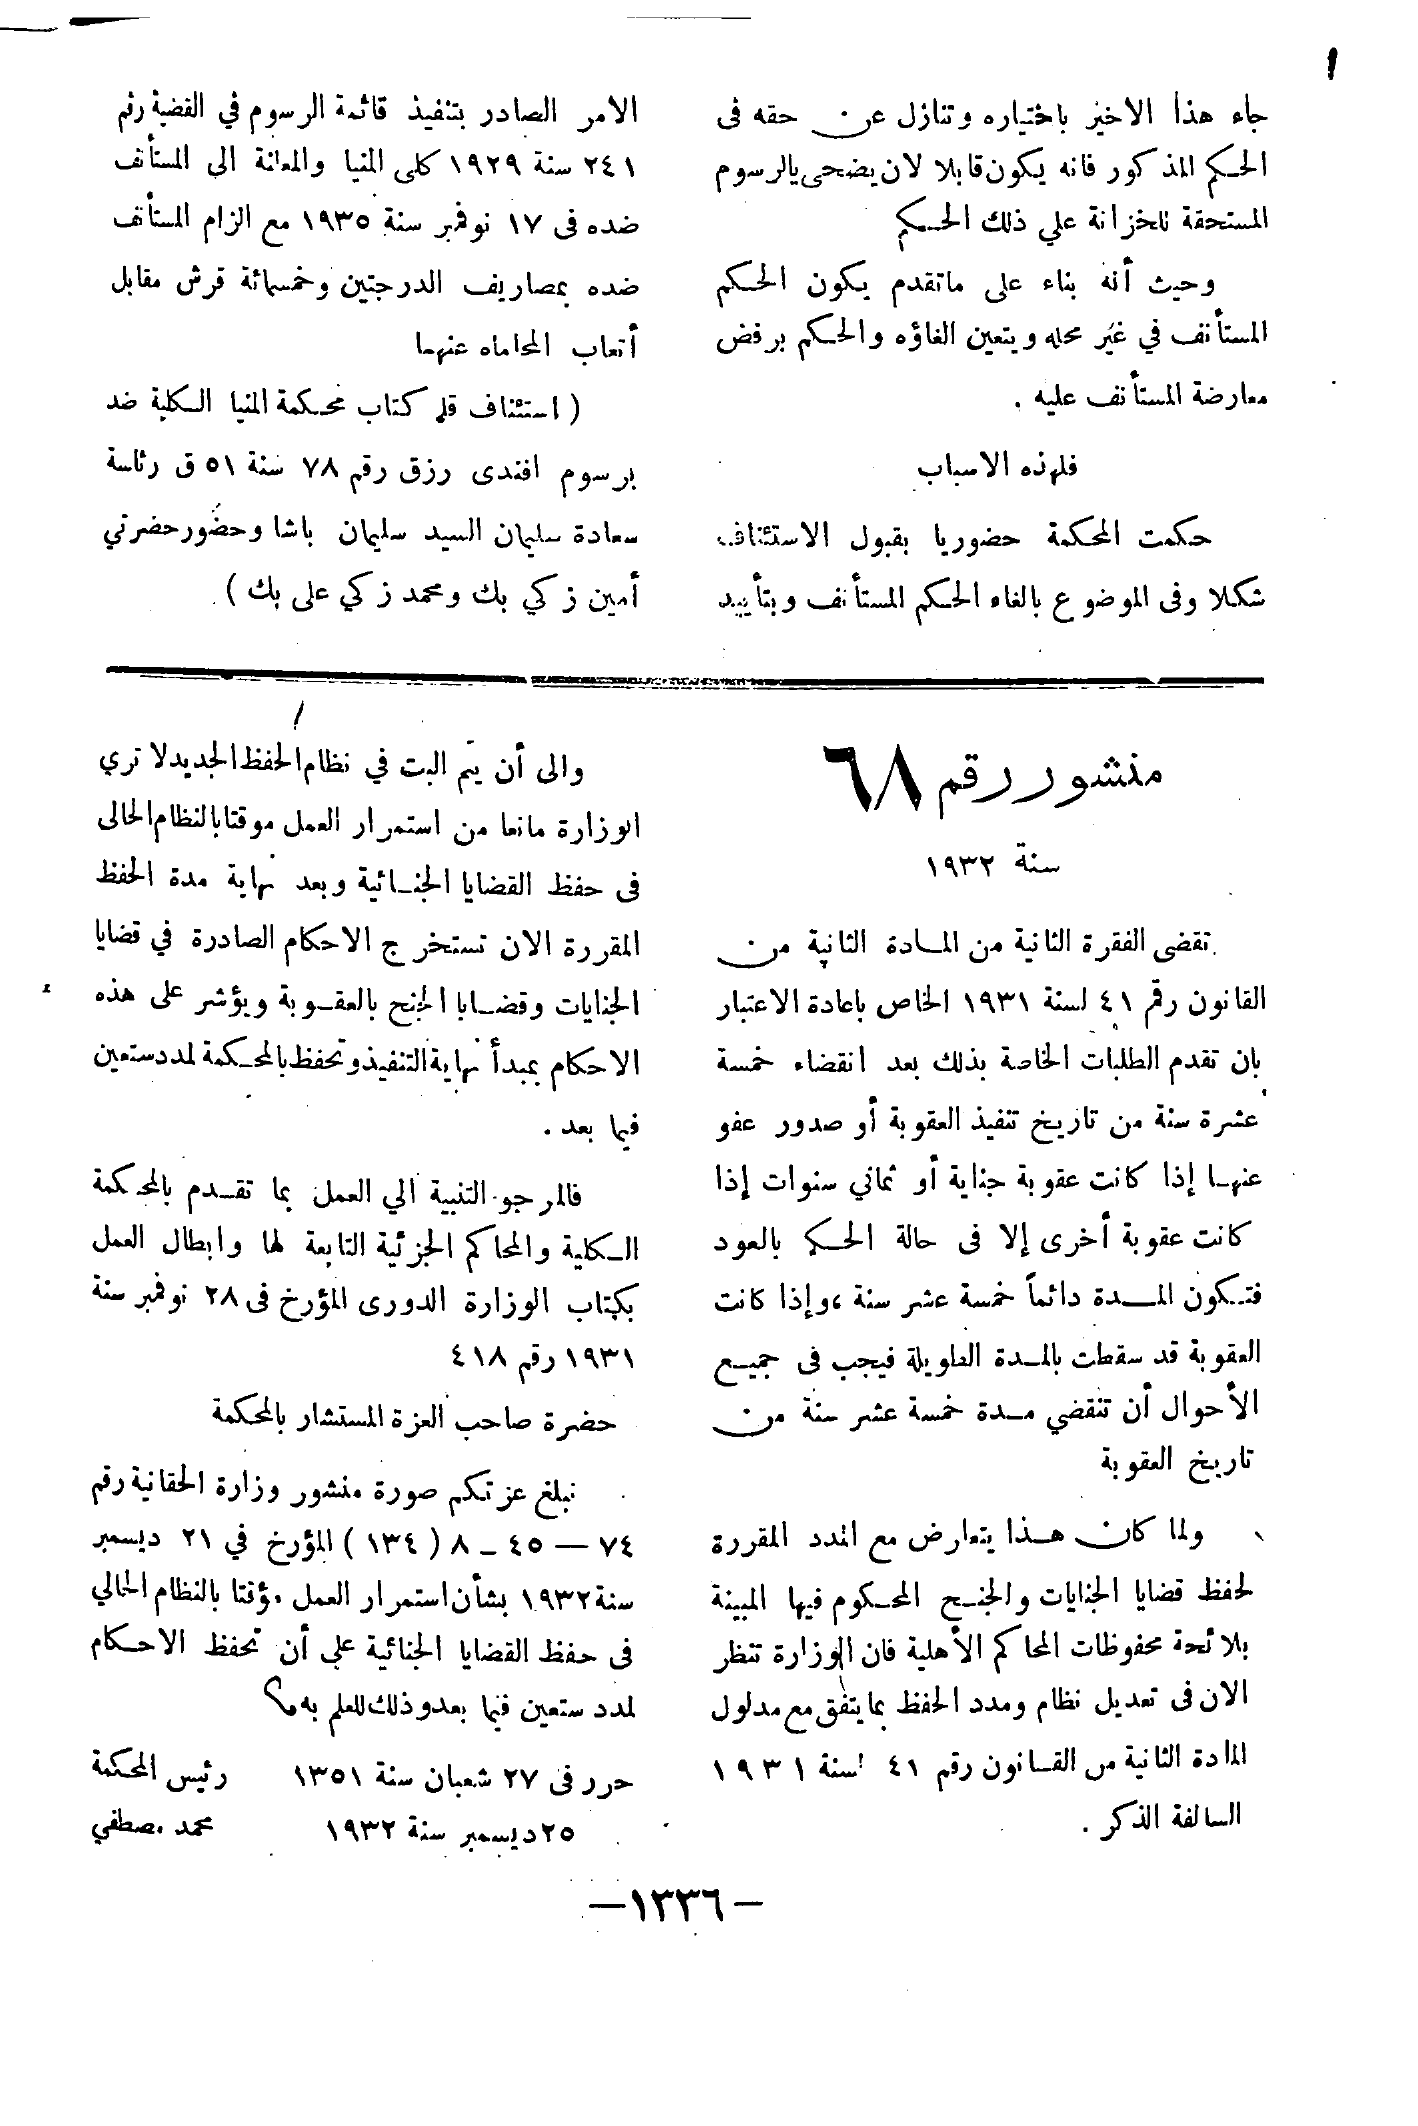 جاء هذا الاخير باختياره وتنازل عن حقه فى
الحكم المذكور فانه يكون قابلا لان يضحى بالرسوم
المستحقة للخزانة علي ذلك الحكم
وحيث أنه بناء على ماتقدم يكون الحكم
المستأنف في غير محله ويتعين الغاؤه والحكم برفض
معارضة المستأنف عليه .
فلهذه الاسباب
حكمت المحكمة حضوريا بقبول الاستئناف
شكلا وفى الموضوع بالغاء الحكم المستأنف وبتأييد
الامر الصادر بتنفيذ قائمة الرسوم في القضية رقم
٢٤١ سنة ١٩٢٩ كلى المنيا والمعلنة الى المستأنف
ضده فى ١٧ نوفمبر سنة ١٩٣٥ مع الزام المستأنف
ضده بمصاريف الدرجتين وخمسمائة قرش مقابل
أتعاب المحاماه عنهما
( استئناف قلم كتاب محكمة المنيا الكلية ضد
برسوم افندى رزق رقم ٧٨ سنة ٥١ ق رئاسة
سعادة سليمان السيد سليمان باشا وحضور حضرتي
أمين زكي بك ومحمد زكي على بك ) .
منشور رقم ٦٨
سنة ١٩٣٢
تقضى الفقرة الثانية من المادة الثانية من
القانون رقم ٤١ لسنة ١٩٣١ الخاص باعادة الاعتبار
بان تقدم الطلبات الخاصة بذلك بعد انقضاء خمسة
عشرة سنة من تاريخ تنفيذ العقوبة أو صدور عفو
عنها إذا كانت عقوبة جناية أو ثماني سنوات إذا
كانت عقوبة أخرى إلا فى حالة الحكم بالعود
فتكون المدة دائماً خمسة عشر سنة ، وإذا كانت
العقوبة قد سقطت بالمدة الطويلة فيجب فى جميع
الأحوال أن تنقضي مدة خمسة عشر سنة من
تاريخ العقوبة
ولما كان هذا يتعارض مع المدد المقررة
لحفظ قضايا الجنايات والجنح المحكوم فيها المبينة
بلائحة محفوظات المحاكم الأهلية فان الوزارة تنظر
الان فى تعديل نظام ومدد الحفظ بما يتفق مع مدلول
المادة الثانية من القانون رقم ٤١ لسنة ١٩٣١
السالفة الذكر .
والى أن يتم البت في نظام الحفظ الجديد لا تري
الوزارة مانعا من استمرار العمل موقتا بالنظام الحالى
فى حفظ القضايا الجنائية وبعد نهاية مدة الحفظ
المقررة الان تستخرج الاحكام الصادرة في قضايا
الجنايات وقضايا الجنح بالعقوبة ويؤشر على هذه
الاحكام بمبدأ نهاية التنفيذ وتحفظ بالمحكمة لمدد ستعين
فيما بعد .
فالمرجو التنبية الي العمل بما تقدم بالمحكمة
الكلية والمحاكم الجزئية التابعة لها وابطال العمل
بكتاب الوزارة الدورى المؤرخ فى ٢٨ نوفمبر سنة
١٩٣١ رقم ٤١٨
حضرة صاحب العزة المستشار بالمحكمة
نبلغ عزتكم صورة منشور وزارة الحقانية رقم
٧٤ — ٤٥ - ٨ ( ١٣٤ ) المؤرخ في ٢١ ديسمبر
سنة ١٩٣٢ بشأن استمرار العمل مؤقتا بالنظام الحالي
فى حفظ القضايا الجنائية علي أن تحفظ الاحكام
لمدد ستعين فيما بعد وذلك للعلم به
حرر فى ٢٧ شعبان سنة ١٣٥١ رئيس المحكمة
٢٥ ديسمبر سنة ١٩٣٢ محمد مصطفي
— ١٣٣٦ —